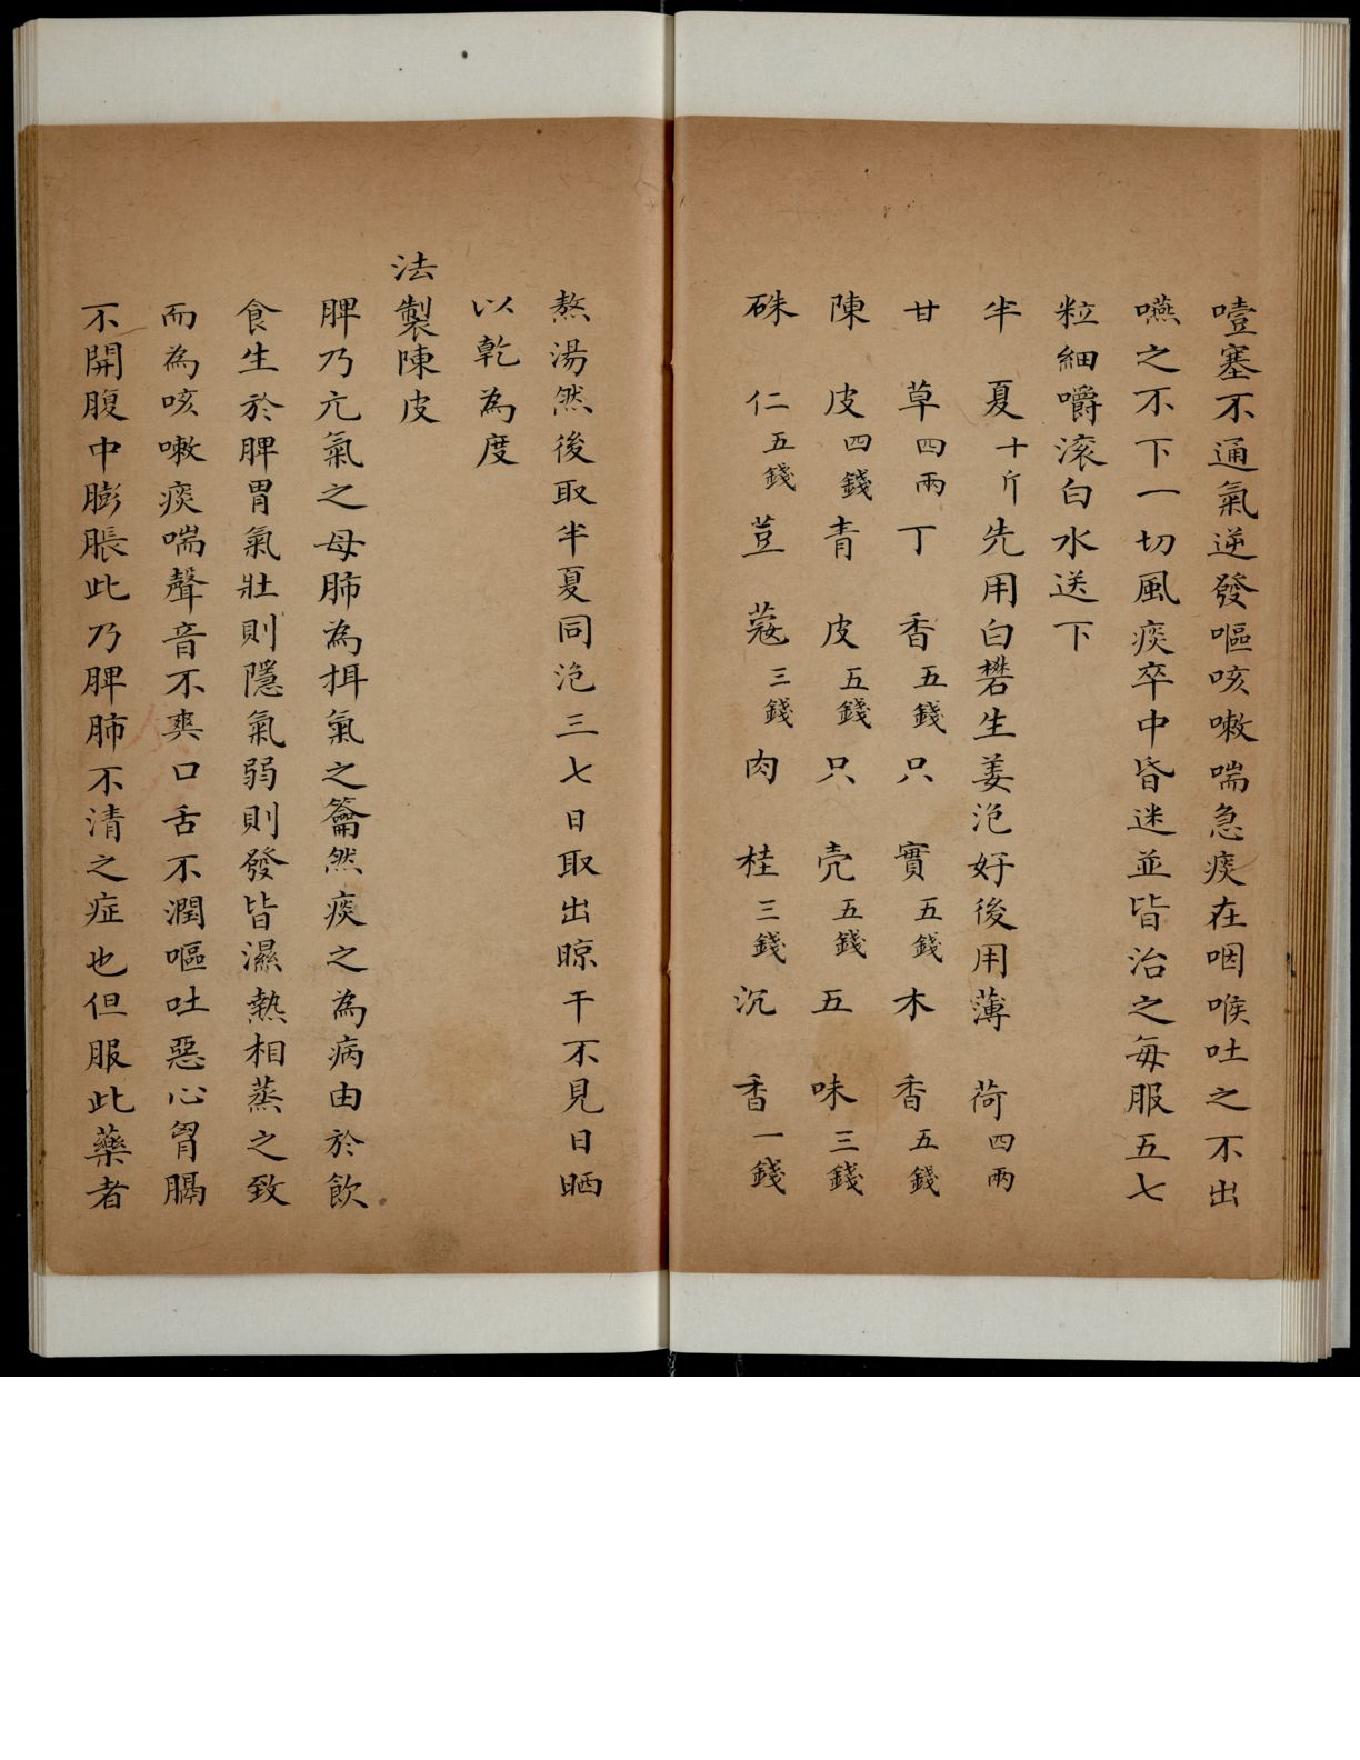 噎塞不通氣逆發嘔咳嗽喘急痰在咽喉吐之不出
嚥之不下一切風痰卒中昏迷並皆治之每服五七
粒細嚼滚白水送下
半夏十斤先用白礬生姜泡好後用薄荷四兩
甘草四兩丁香五錢只實五錢木香五錢
陳皮四錢青皮五錢只壳五錢五味三錢
硃仁五錢荳蔻三錢肉桂三錢沉香一錢
熬湯然後取半夏同泡三七日取出晾干不見日晒
以乾為度
法製陳皮
脾乃亢氣之母肺為揖氣之籥然痰之為病由於飲
食生於脾胃氣壯則隱氣弱則發皆濕熱相蒸之致
而為咳嗽痰喘聲音不爽口舌不潤嘔吐惡心胷膈
不開腹中膨脹此乃脾肺不清之症也但服此藥者